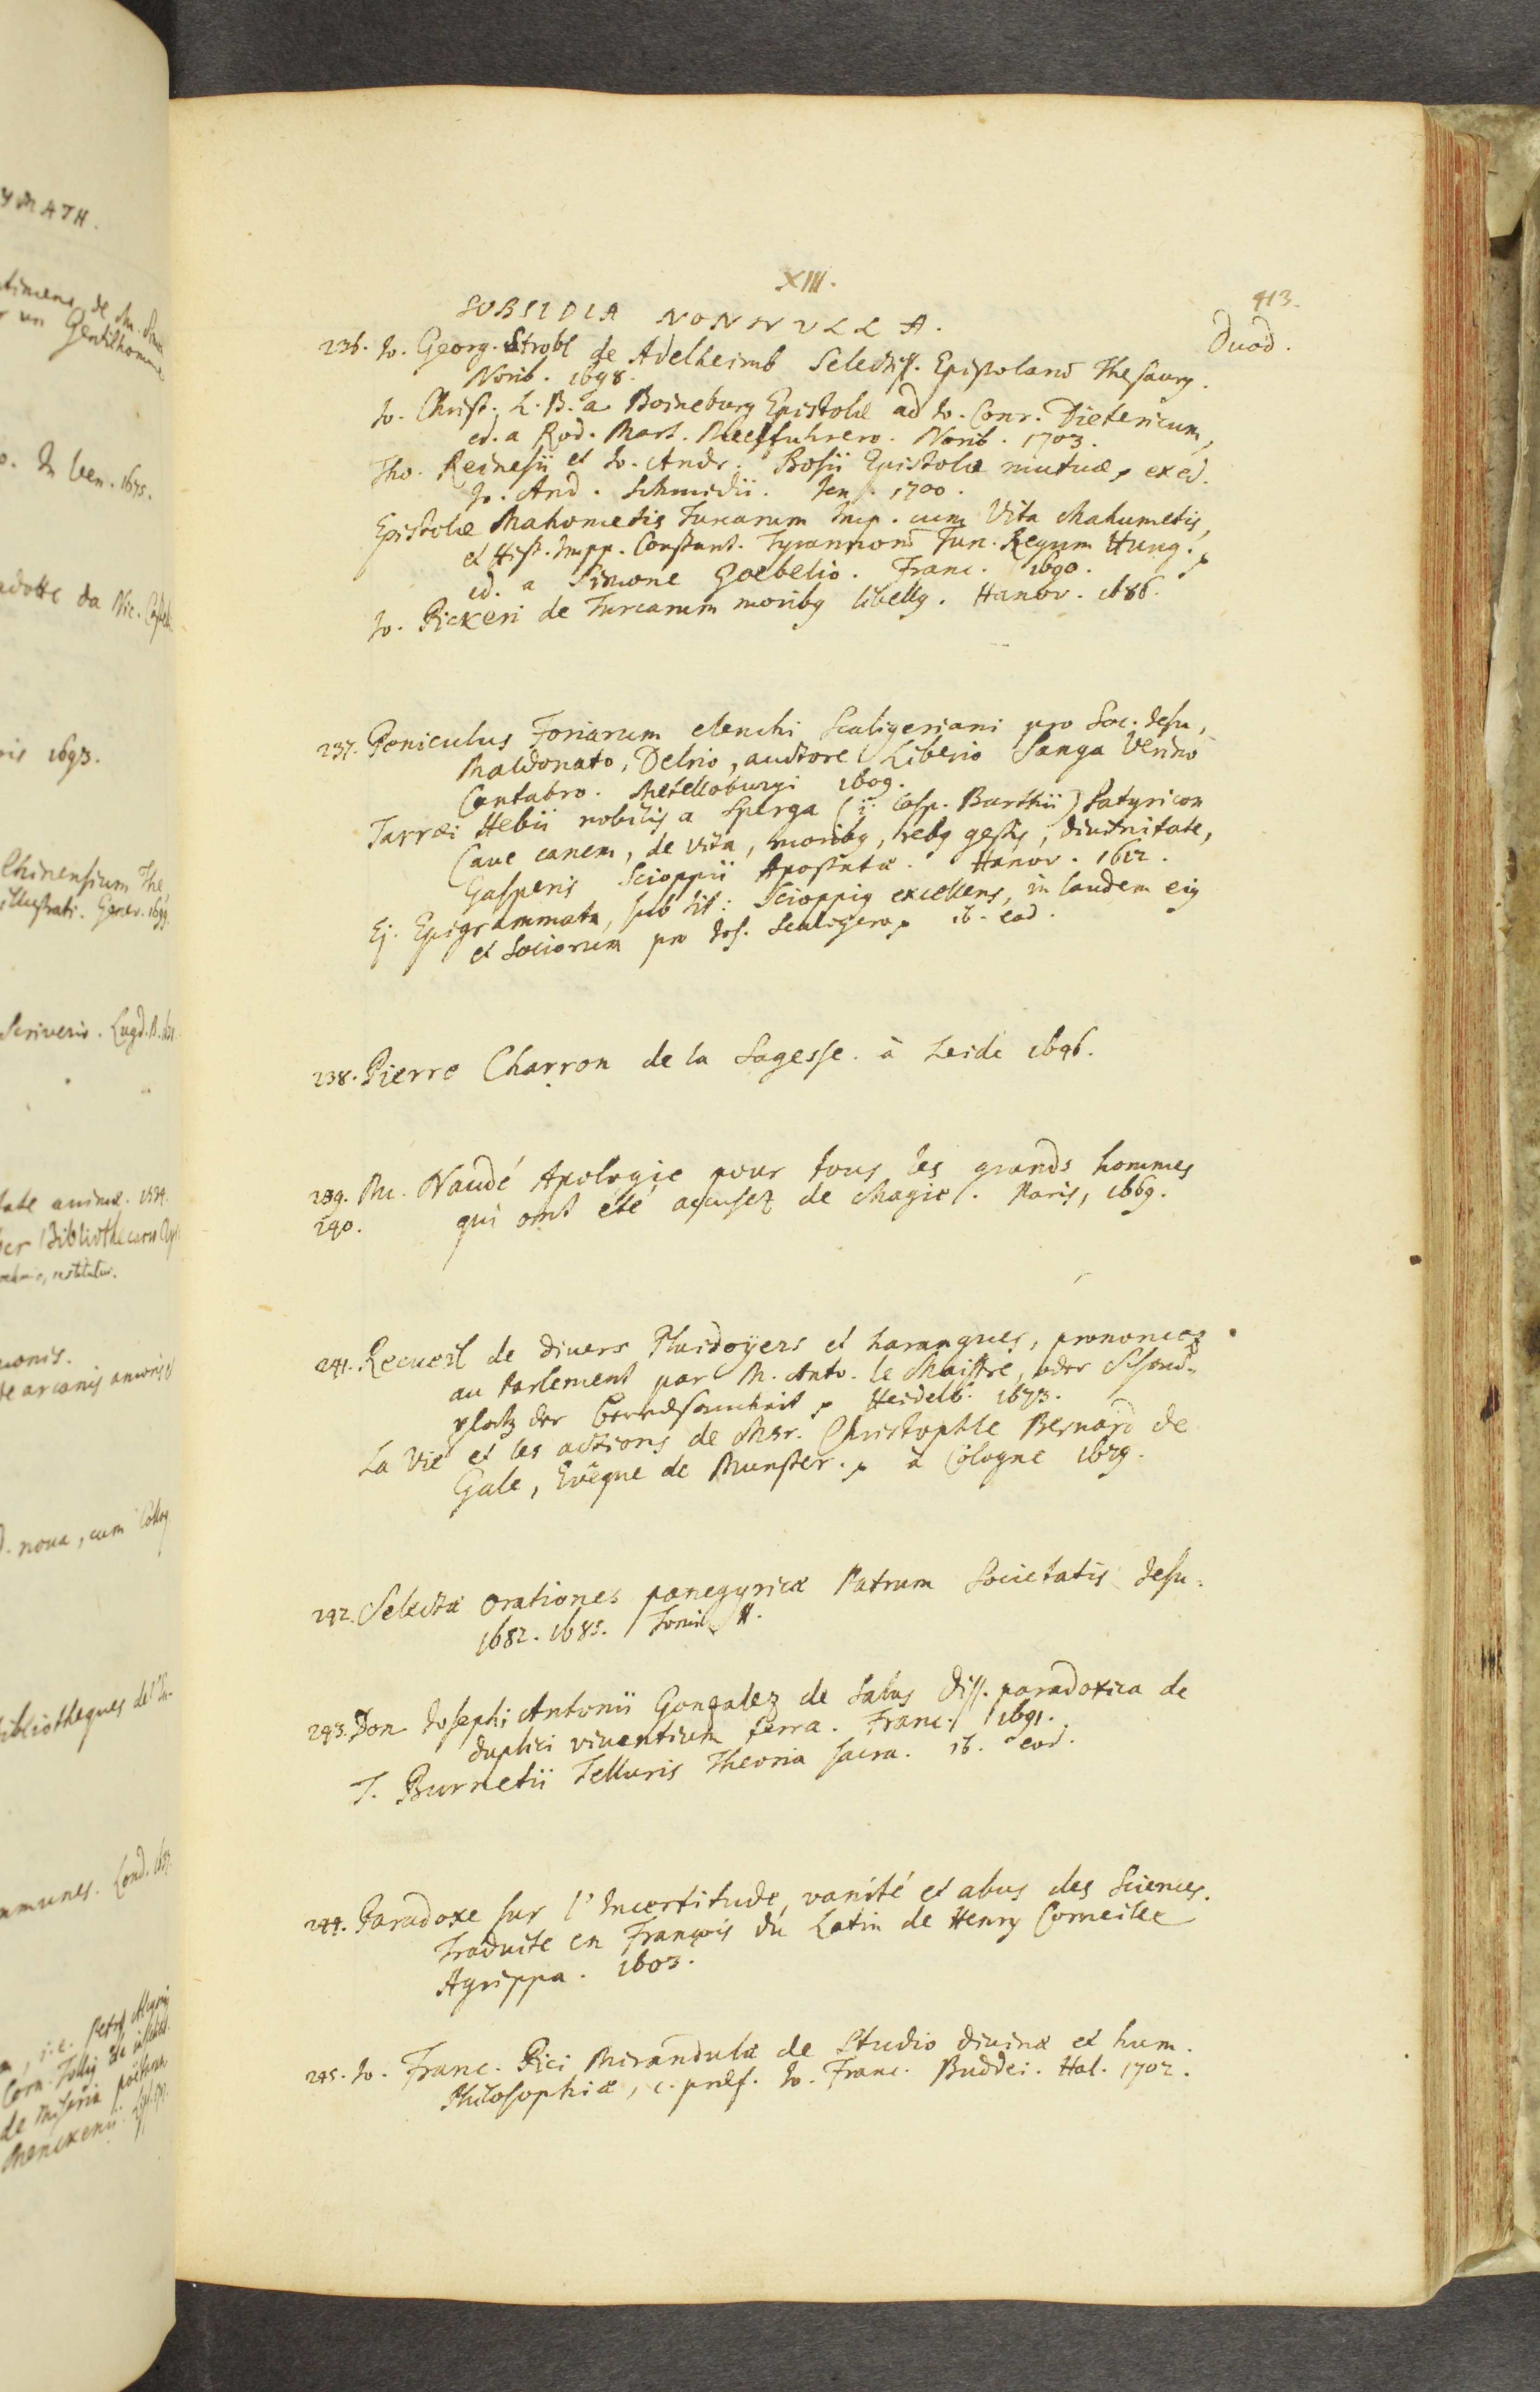 XIII.
413.
SUBSIDIA NONNULLA.
Duod.
236. Jo. Georg. Strobl de Adelheimb Selectiss. Epistolarū Thesaurꝯ.
Norib. 1698.
Jo. Christ. L. B. a Boineburg Epistolæ ad Jo. Conr. Dietericum,
ed. a Rod. Mart. Meelfuhrero. Norib. 1703.
Tho. Reinesii et Jo. Andr. Bosii Epistolæ mutuæ, ex ed.
Jo. And. Schmidii. Jen. 1700.
Epistolæ Mahometis Turcarum Imp. cum Vita Mahumetis,
et Hist. Impp. Constant. Tyrannorū Tur. Regum Hung.
ed. a Simone Goebelio. Franc. 1690.
Jo. Pickeri de Turcarum moribꝯ libellꝯ. Hanov. 1686.
237. Peniculus Foriarum elenchi Scaligeriani pro Soc. Jesu,
Maldonato, Delrio, auctore Liberio Sanga Verino
Cantabro. Metelloburgi 1609.
Tarræi Hebii nobilis a Sperga (i. Casp. Barthii) Satyricon
Cave canem, de vita, moribꝯ, rebꝯ gestis, divinitate,
Gasperis Scioppii Apostatæ. Hanov. 1612.
Ej. Epigrammata, sub tit: Scioppiꝯ excellens, in laudem eiꝯ
et Sociorum pro Jos. Scaligero, ib. eod.
238. Pierre Charron de la Sagesse. à Leide 1696.
239. M. Naudé Apologie pour tous les grands hommes
240. qui ont été accusez de Magie. Paris, 1669.
241. Recueil de divers Plaidoyers et harangues, prononcez
au Parlement par M. Anto. le Maistre, oder Schaud-
platz der Beredsamkeit, Heidelb. 1673.
La Vie et les actions de Msr. Christophle Bernard de
Gale, Evêque de Munster. à Cologne 1679.
242. Selectæ Orationes panegyricæ Patrum Societatis Jesu.
1682. 1685. Tomi II.
243. Don Josephi Antonii Gonzalez de Salas Diss. paradoxica de
duplici viventium terra. Franc. 1691.
T. Burnetii Telluris Theoria sacra. ib. eod.
244. Paradoxe sur l'Incertitude, vanité et abus des Sciences.
Traduite en François du Latin de Henry Corneille
Agrippa. 1603.
245. Jo. Franc. Pici Mirandulæ de Studio divinæ et hum.
Philosophiæ, c. præf. Jo. Franc. Buddei. Hal. 1702.